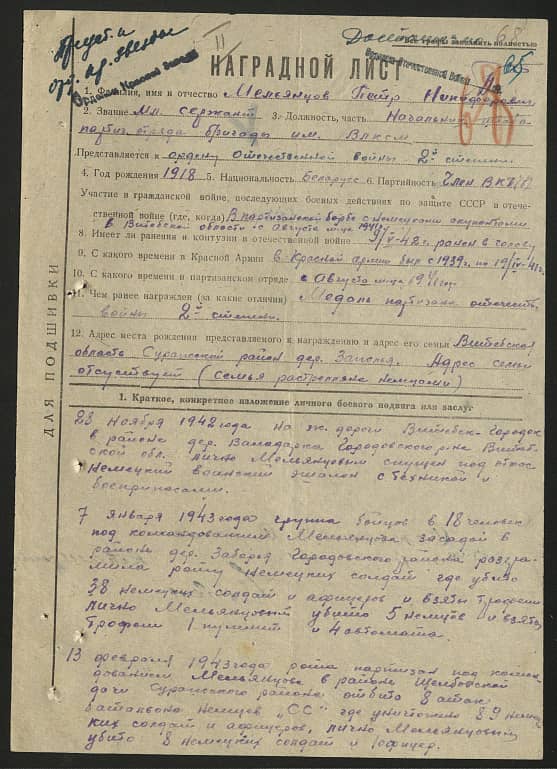 Орден Красной Звезды
Орден Отечественной Войны
68
65
НАГРАДНОЙ ЛИСТ
1. Фамилия, имя и отчество Мельянцов Петр Никифорович
2. Звание Мл. сержант 3. Должность, часть Начальник штаба
партиз. отряда бригады им. ВЛКСМ
Представляется к ордену Отечественной войны 2й степени
4. Год рождения 1918 5. Национальность Беларусс 6. Партийность Член ВКП(б)
Участие в гражданской войне, последующих боевых действиях по защите СССР и отече-
ственной войне (где, когда) В партизанской борьбе с немецкими окупантами
в Витебской области с августа м-ца 1941г.
8. Имеет ли ранения и контузии в отечественной войне 42г. ранен в голову
9. С какого времени в Красной Армии в Красной армии был с 1939г. по 41г.
10. С какого времени в партизанском отряде с августа м-ца 1941 год.
11. Чем ранее награжден (за какие отличия) Медаль партизана отечеств.
войны 2й степени.
12. Адрес места рождения представляемого к награждению и адрес его семьи Витебская
область Суражский район дер. Заполья. Адрес семьи
отсуствует (семья растреляна немцами)
ДЛЯ ПОДШИВКИ
1. Краткое, конкретное изложение личного боевого подвига или заслуг
23 ноября 1942 года на ж. дороги Витебск-Городок
в районе дер. Городокского р-на Витеб-
ской обл. лично Мельянцовым спущен под откос
Немецкий воинский эшалон с техникой и
боеприпасами.
7 января 1943 года группа бойцов в 18 человек
под командованием Мельянцова засадой в
районе дер. Заборья Городокского района разгро-
мила роту немецких солдат где убито
38 немецких солдат и афицеров и взяты трофеи
лично Мельянцовым убито 5 немцев и взяты
трофеи 1 пулимет и 4 автомата.
13 февраля 1943 года рота партизан под коман-
дованием Мельянцова в районе Щелбовской
дачи Суражского района отбито 8 атак
батальона немцев „СС" где уничтожено 89 немец-
ких солдат и афицеров, лично Мельянцовым
убито 8 немецких солдат и 1 офицер.